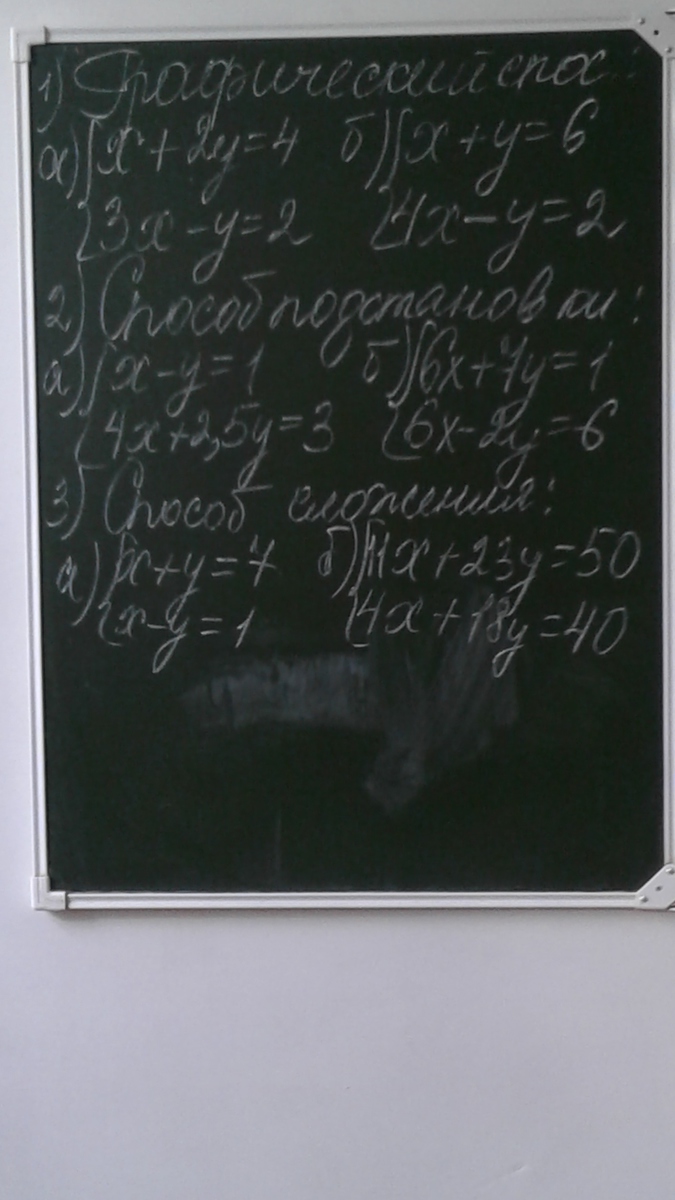 1) Графический спос.:
а) { x + 2y = 4 б) { x + y = 6
{ 3x - y = 2 { 4x - y = 2
2) Способ подстановки:
а) { x - y = 1 б) { 6x + 7y = 1
{ 4x + 2,5y = 3 { 6x - 2y = 6
3) Способ сложения:
а) { x + y = 7 б) { 11x + 23y = 50
{ x - y = 1 { 4x + 18y = 40